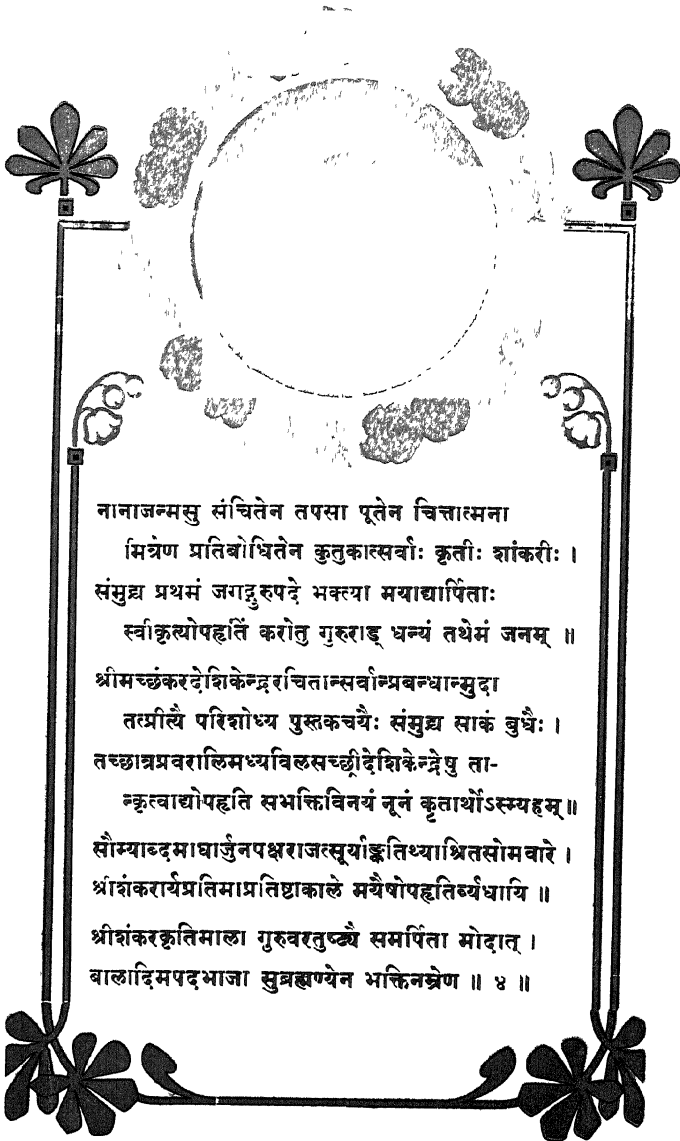 नानाजन्मसु संचितेन तपसा पूतेन चित्तात्मना
मित्रेण प्रतिबोधितेन कुतुकात्सर्वाः कृतीः शांकरीः ।
संमुद्य प्रथमं जगद्गुरुपदे भक्त्या मयाद्यार्पिताः
स्वीकृत्योपहृतिं करोतु गुरुराड् धन्यं तथेमं जनम् ॥
श्रीमच्छंकरदेशिकेन्द्ररचितान्सर्वान्प्रबन्धान्मुदा
तत्प्रीत्यै परिशोध्य पुस्तकचयैः संमुद्य साकं बुधैः ।
तच्छात्रप्रवरालिमध्यविलसच्छ्रीदेशिकेन्द्रेषु ता-
न्कृत्वाद्योपहृति सभक्तिविनयं नूनं कृतार्थोऽस्म्यहम् ॥
सौम्याब्दमाघार्जुनपक्षराजत्सूर्याङ्कतिथ्याश्रितसोमवारे ।
श्रीशंकरार्यप्रतिमाप्रतिष्टाकाले मयैषोपहृतिर्व्यधायि ॥
श्रीशंकरकृतिमाला गुरुवरतुष्ट्यै समर्पिता मोदात् ।
बालादिमपदभाजा सुब्रह्मण्येन भक्तिनम्रेण ॥ ४ ॥